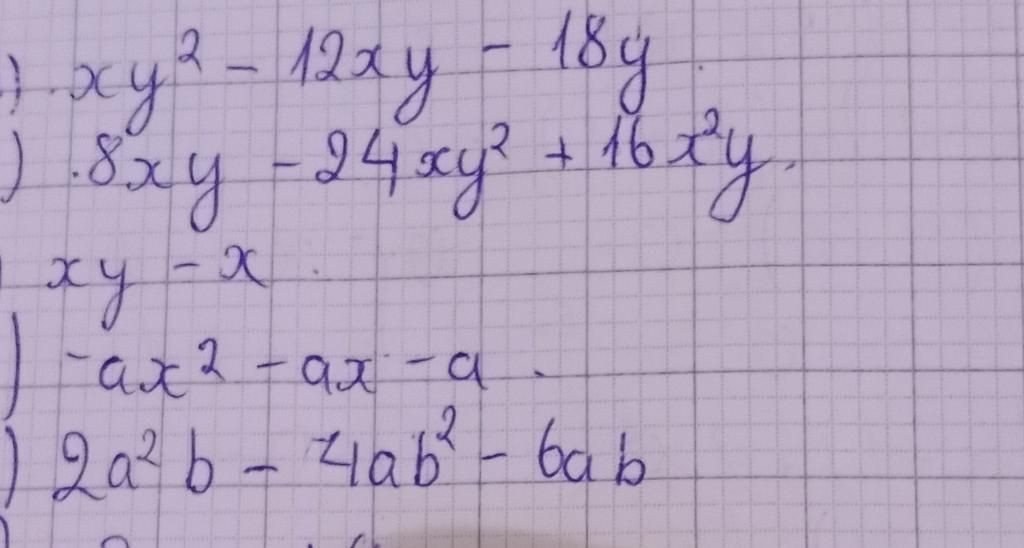 ) xy² - 12xy - 18y
) 8xy - 24xy² + 16x²y
) xy - x
) -ax² - ax - a
) 2a²b - 4ab² - 6ab